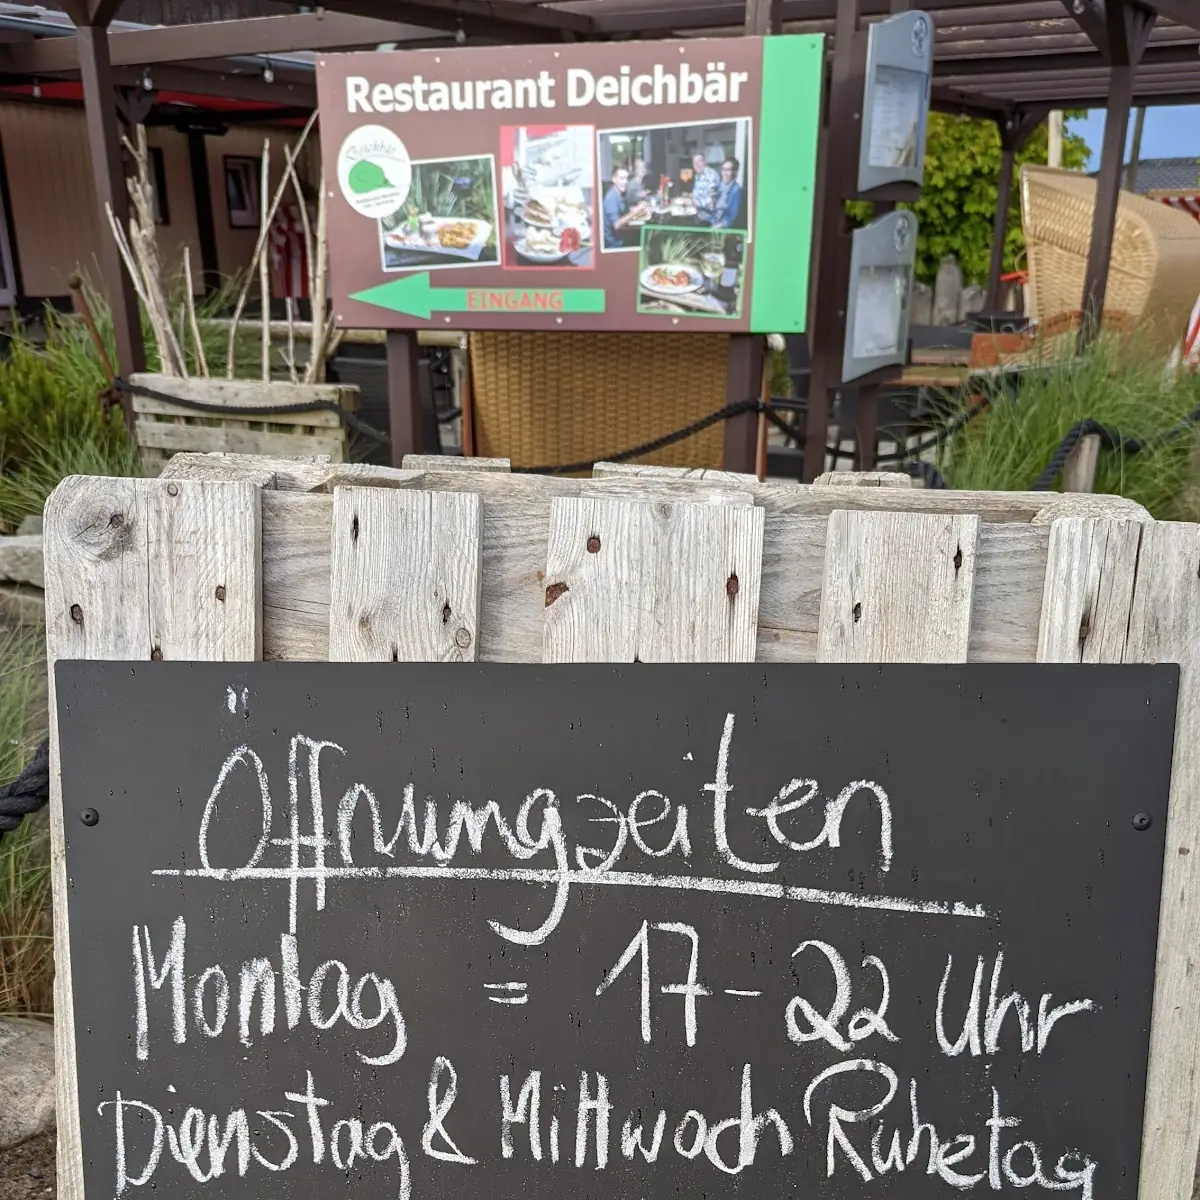 Restaurant Deichbär
EINGANG
Öffnungzeiten
Montag = 17-22 Uhr
Dienstag & Mittwoch Ruhetag